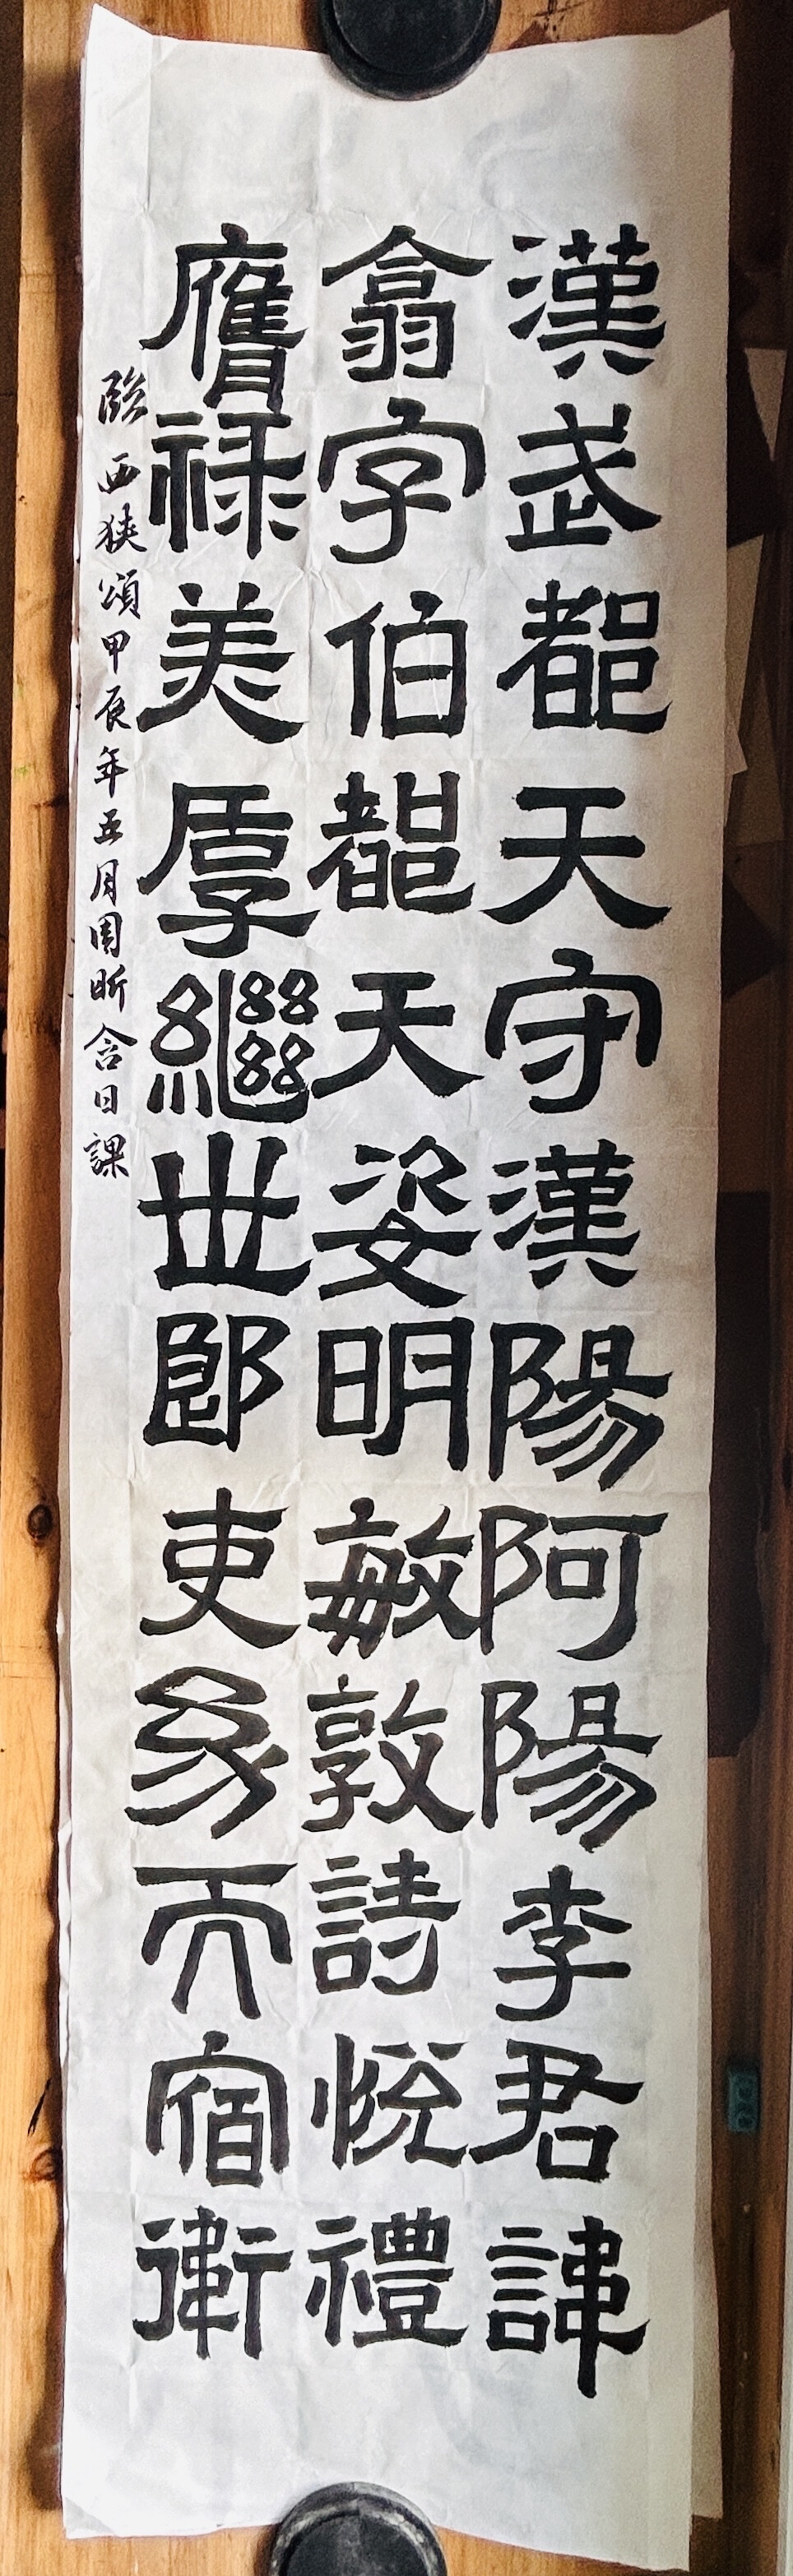 漢武都天守漢陽阿陽李君諱
翕字伯都天姿明敏敦詩悅禮
膺禄美厚繼世郎吏幼而宿衛
臨西狹頌甲辰年五月周昕含日課